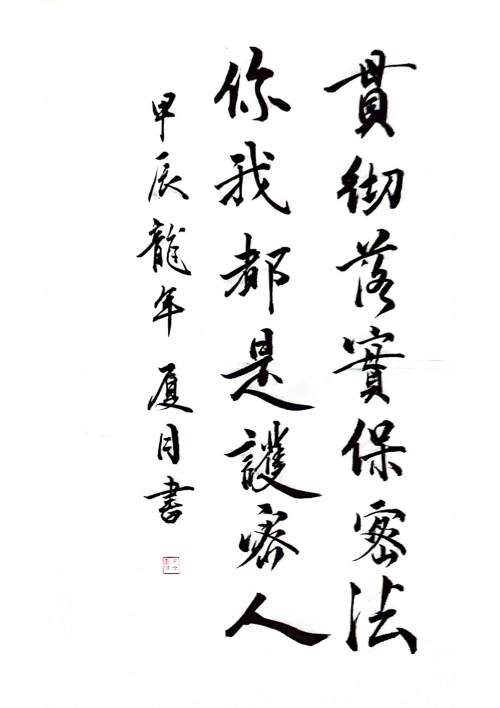 貫彻落實保密法
你我都是護密人
甲辰龍年夏月書